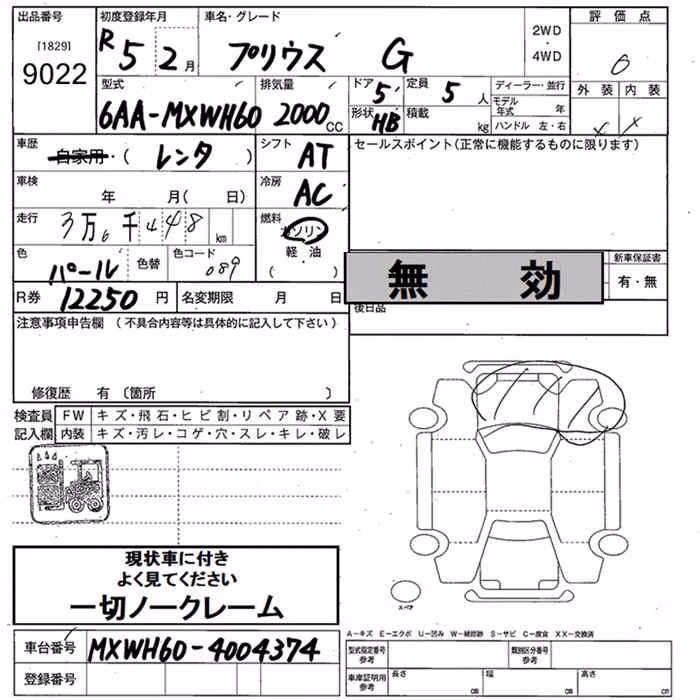 出品番号
[1829]
9022
初度登録年月
R 5 2月
車名・グレード
プリウス G
2WD
・
4WD
評価点
0
外装 内装
× ×
型式
6AA-MXWH60
排気量
2000 CC
ドア
5
形状
HB
定員
5 人
積載
kg
ディーラー・並行
モデル年式 年
ハンドル 左・右
車歴
自家用・(レンタ)
シフト
AT
セールスポイント(正常に機能するものに限ります)
車検
年 月( 日)
冷房
AC
走行
3万6千448km
燃料
ガソリン
軽油
( )
色
パール
色替
色コード
089
無効
新車保証書
有・無
R券 12250 円
名変期限 月 日
後日品
注意事項申告欄 (不具合内容等は具体的に記入して下さい)
修復歴 有 〔箇所 〕
検査員記入欄
FW キズ・飛石・ヒビ割・リペア跡・X要
内装 キズ・汚レ・コゲ・穴・スレ・キレ・破レ
現状車に付き
よく見てください
一切ノークレーム
スペア
A-キズ E-エクボ U-凹み W-補修跡 S-サビ C-腐食 XX-交換済
車台番号 MXWH60-4004374
登録番号
型式指定番号参考
類別区分番号参考
車庫証明用参考
長さ cm
幅 cm
高さ cm